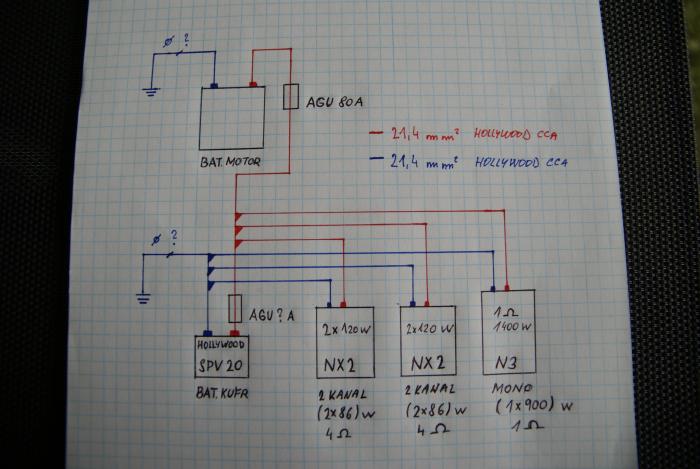 ø ?
AGU 80A
BAT. MOTOR
21,4 mm² HOLLYWOOD CCA
21,4 mm² HOLLYWOOD CCA
ø ?
AGU ? A
HOLLYWOOD
SPV 20
BAT. KUFR
2x120W
NX2
2 KANAL
(2x86) W
4 Ω
2x120 W
NX2
2 KANAL
(2x86) W
4 Ω
1 Ω
1400 W
N3
MONO
(1x900) W
1 Ω